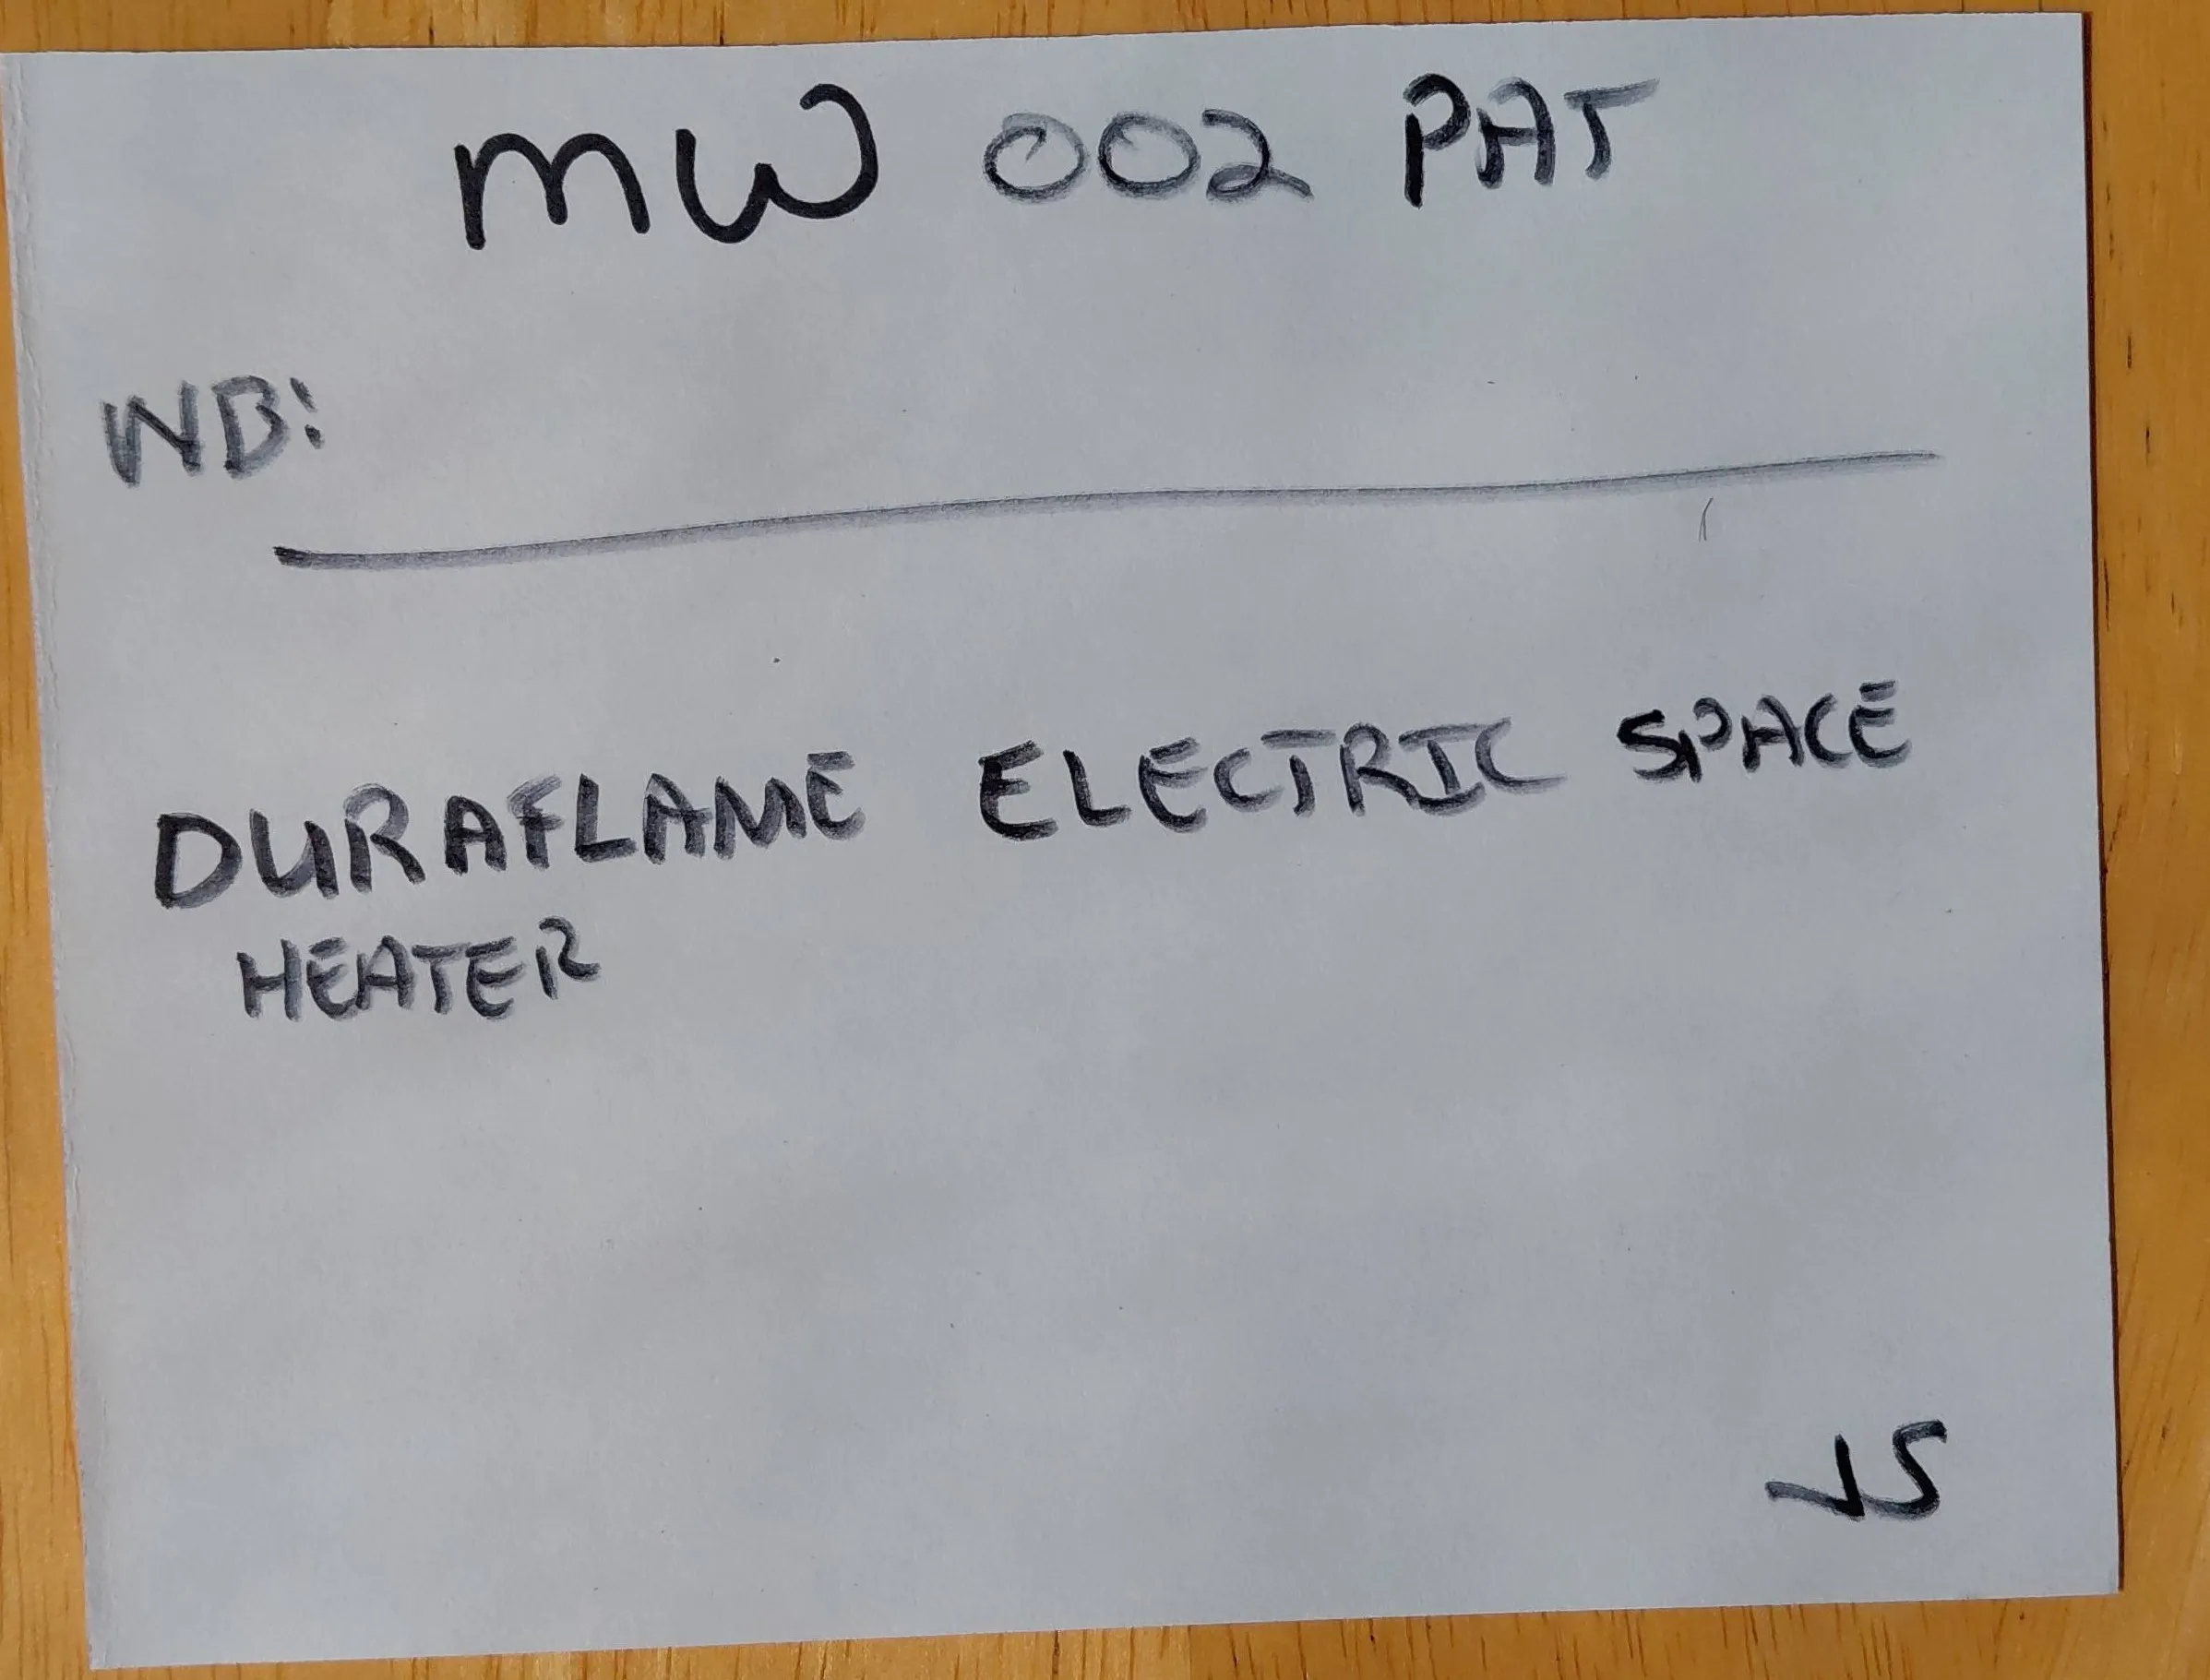 MW 002 PAT
WB:
DURAFLAME ELECTRIC SPACE
HEATER
JS